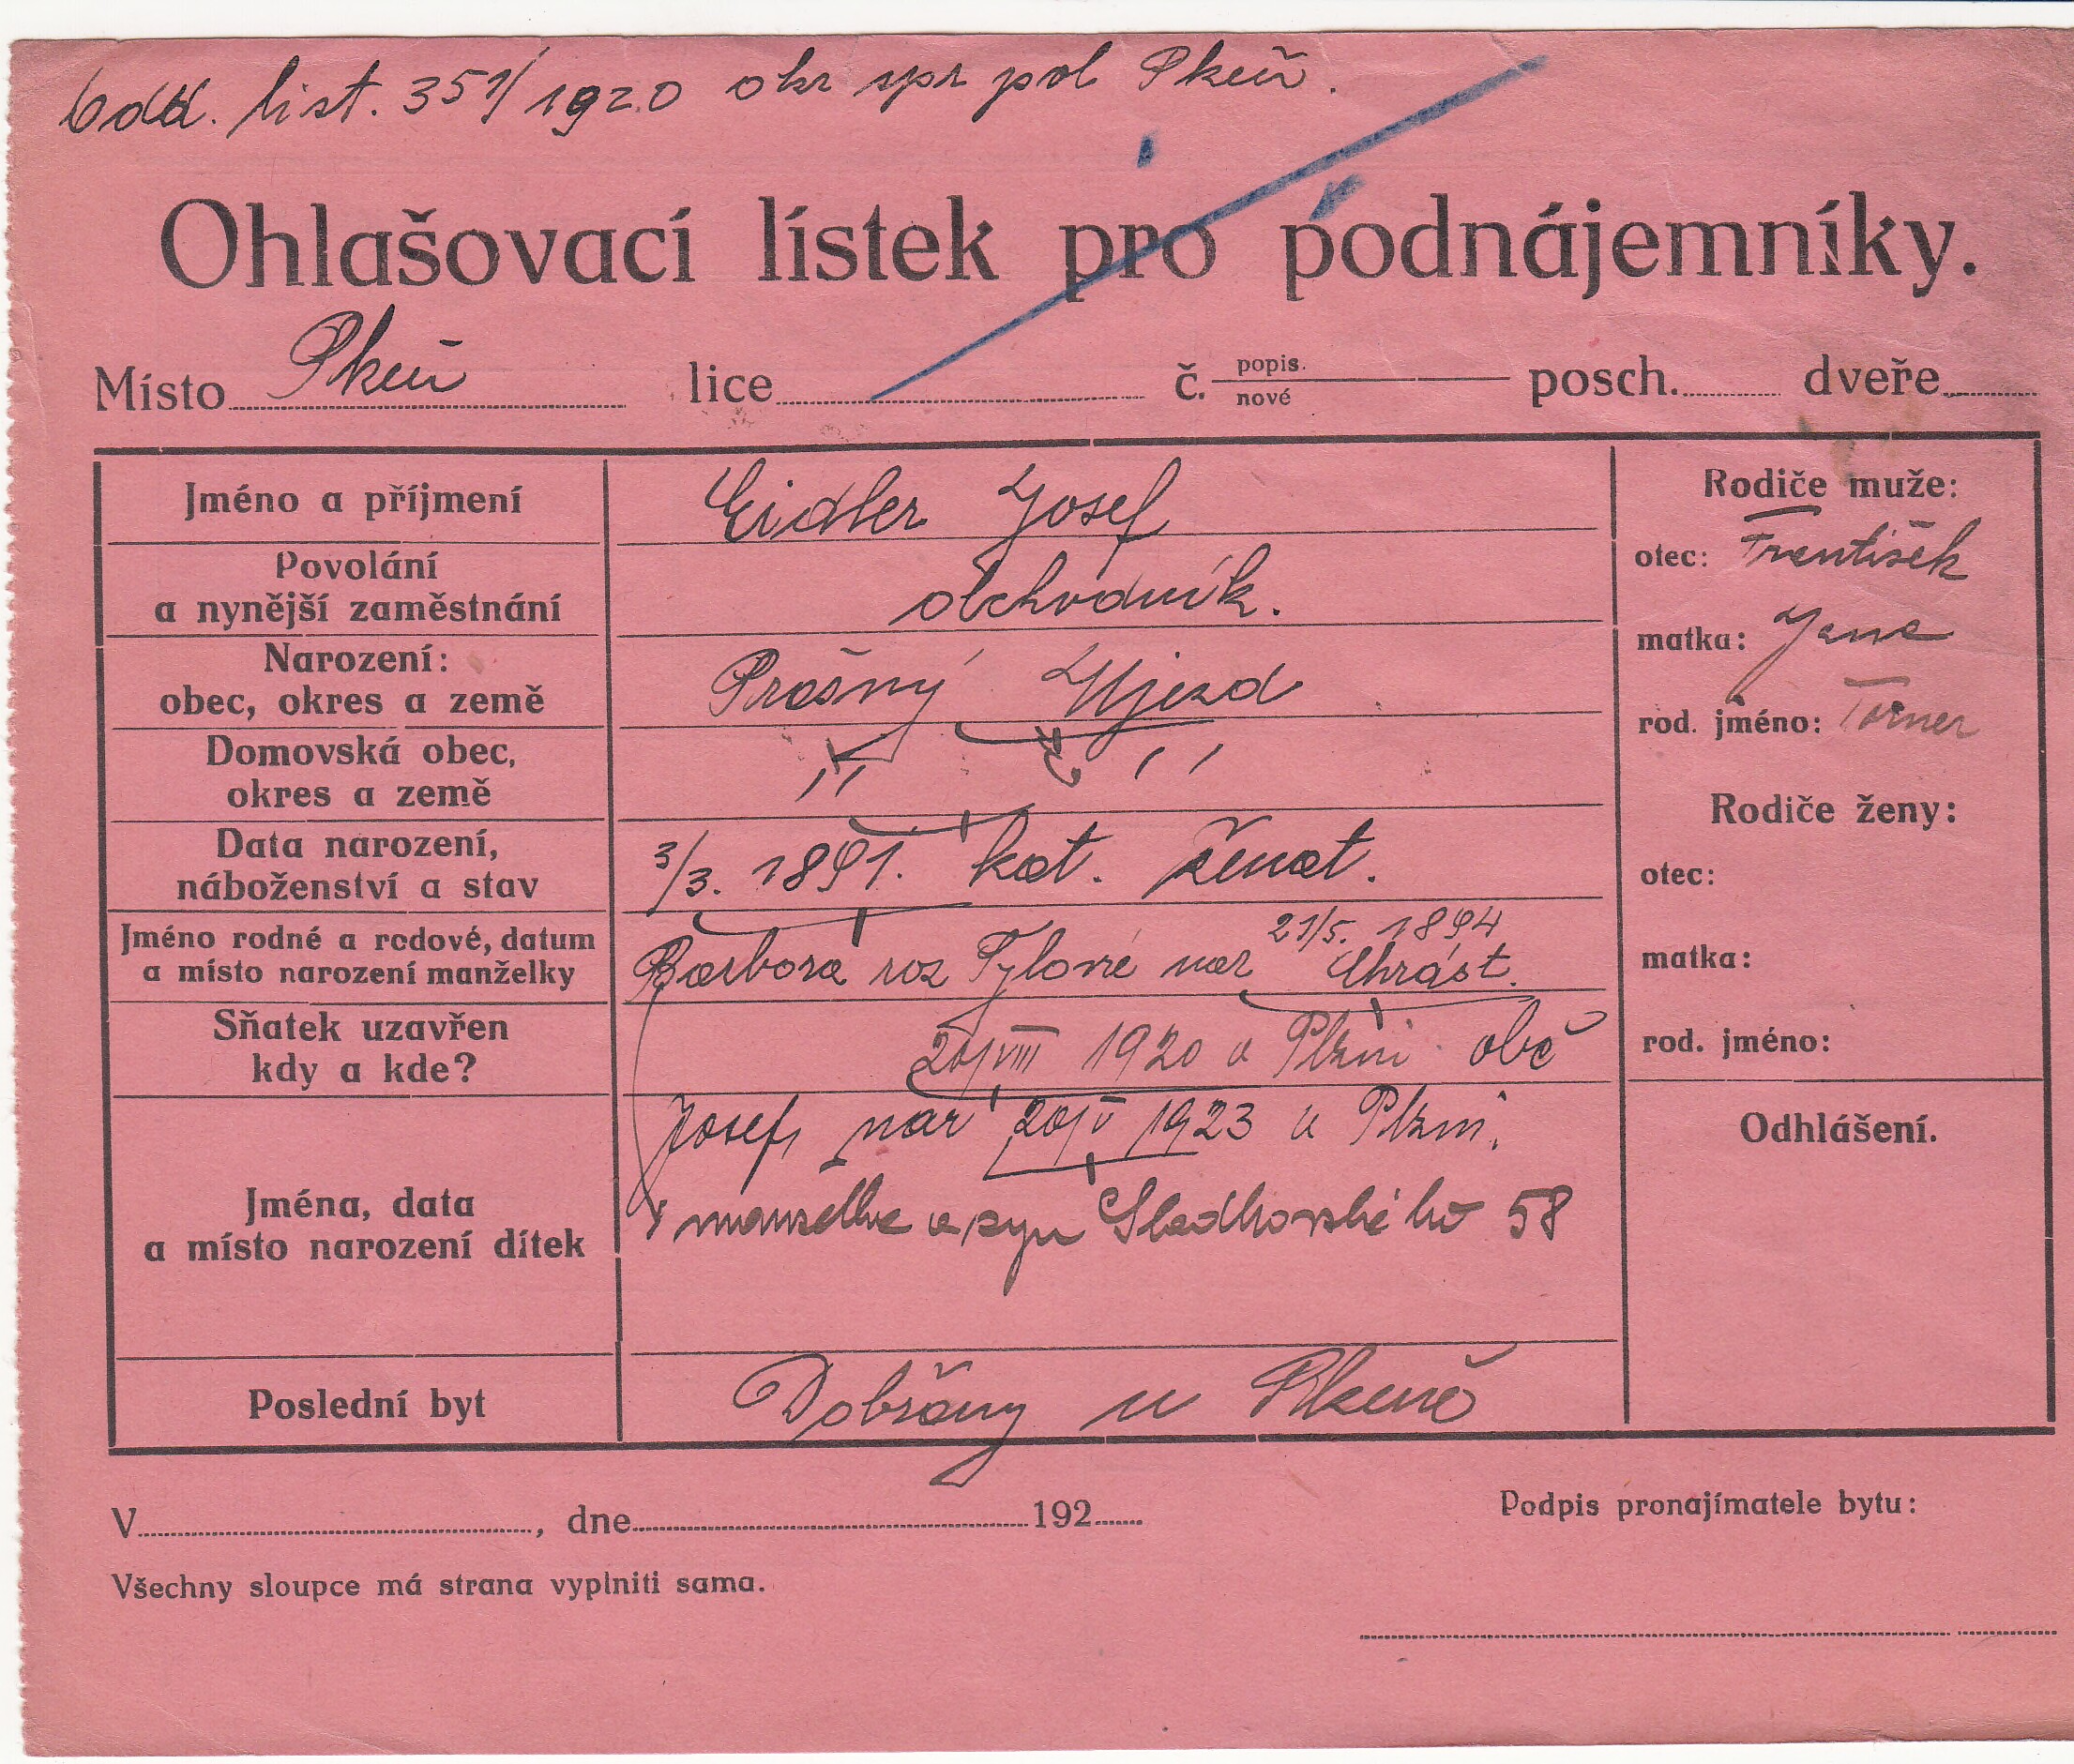 odd. list. 351/1920 okr spr pol Plzeň.
Ohlašovací lístek pro podnájemníky.
Místo Plzeň lice č. popis. nové posch. dveře
Jméno a příjmení Eidler Josef
Povolání
a nynější zaměstnání obchodník.
Narození:
obec, okres a země Prašný Ujezd
Domovská obec,
okres a země ,, ,,
Data narození,
náboženství a stav 3/3. 1891. kat. ženat.
Jméno rodné a rodové, datum
a místo narození manželky Barbora roz Tylové nar 21/5. 1894 Chrást.
Sňatek uzavřen
kdy a kde? 20/VIII 1920 v Plzni obč
Jména, data
a místo narození dítek
Josef, nar 20/V 1923 v Plzni.
manželka a syn Sladkovského 58
Poslední byt Dobřany u Plzně
Rodiče muže:
otec: František
matka: Jana
rod. jméno:
Rodiče ženy:
otec:
matka:
rod. jméno:
Odhlášení.
V , dne 192
Podpis pronajímatele bytu:
Všechny sloupce má strana vyplniti sama.